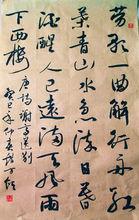 劳歌一曲解行舟红
葉青山水急流日暮
酒醒人已远满天风雨
下西楼 唐诗谢亭送别
癸巳年仲春